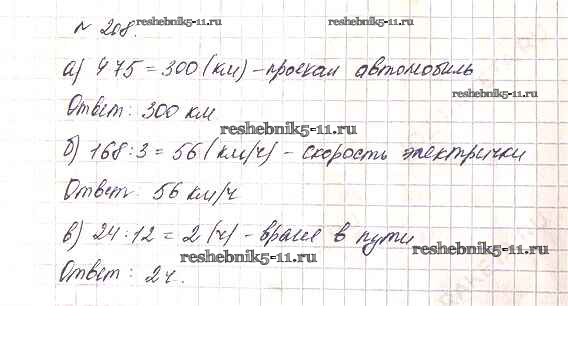 № 208.
reshebnik5-11.ru
а) 4·75 = 300 (км) – проехал автомобиль
reshebnik5-11.ru
Ответ: 300 км
reshebnik5-11.ru
б) 168 : 3 = 56 (км/ч) – скорость электрички
Ответ: 56 км/ч
в) 24 : 12 = 2 (ч) – время в пути
reshebnik5-11.ru
reshebnik5-11.ru
Ответ: 2 ч.